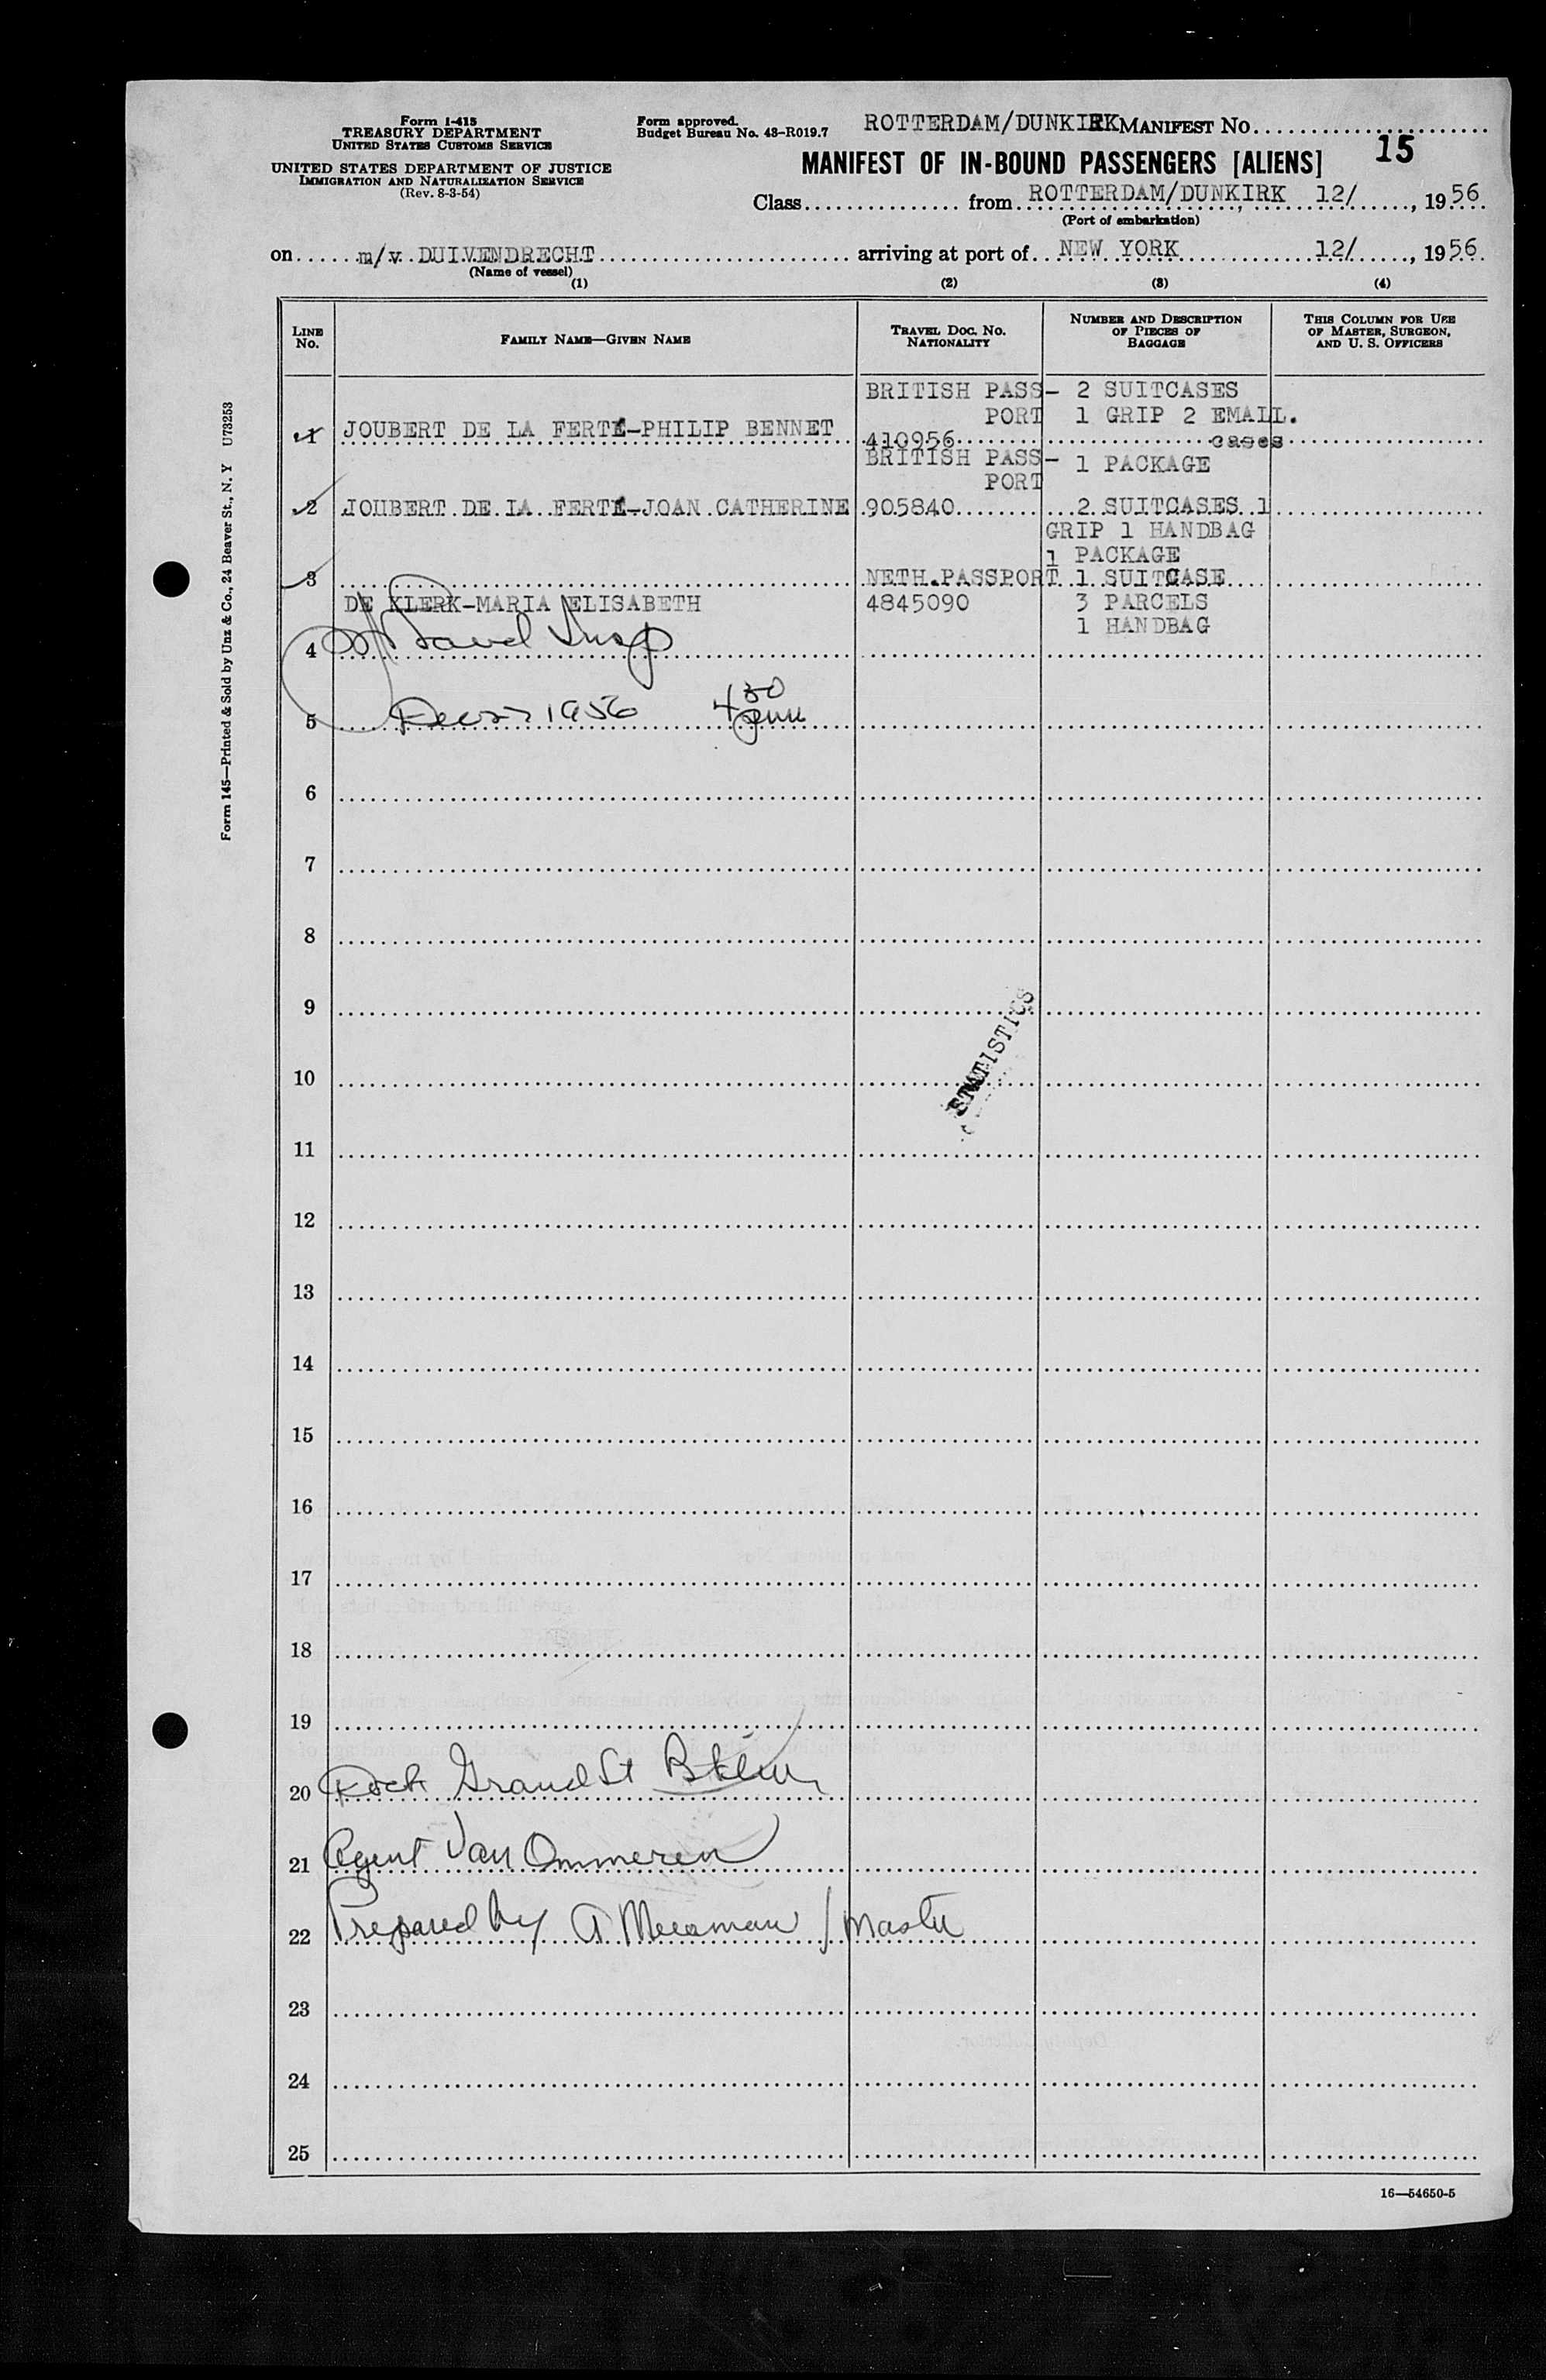 Form I-415
TREASURY DEPARTMENT
UNITED STATES CUSTOMS SERVICE
UNITED STATES DEPARTMENT OF JUSTICE
IMMIGRATION AND NATURALIZATION SERVICE
(Rev. 8-3-54)
Form approved.
Budget Bureau No. 43-R019.7
ROTTERDAM/DUNKIRK MANIFEST No.
15
MANIFEST OF IN-BOUND PASSENGERS [ALIENS]
Class from ROTTERDAM/DUNKIRK 12/, 1956
(Port of embarkation)
on m/v. DUIVENDRECHT arriving at port of NEW YORK 12/, 1956
(Name of vessel)
(1) (2) (3) (4)
LINE No. FAMILY NAME—GIVEN NAME TRAVEL DOC. NO. NATIONALITY NUMBER AND DESCRIPTION OF PIECES OF BAGGAGE THIS COLUMN FOR USE OF MASTER, SURGEON, AND U. S. OFFICERS
BRITISH PASS- 2 SUITCASES
PORT 1 GRIP 2 EMALL.
1 JOUBERT DE LA FERTÉ-PHILIP BENNET 410956 cases
BRITISH PASS- 1 PACKAGE
PORT
2 JOUBERT DE LA FERTÉ-JOAN CATHERINE 905840 2 SUITCASES 1
GRIP 1 HANDBAG
1 PACKAGE
3 NETH.PASSPORT 1 SUITCASE
DE KLERK-MARIA ELISABETH 4845090 3 PARCELS
1 HANDBAG
4 Insp
5 1956 4 30 pm
6
7
8
9
STATISTICS
10
11
12
13
14
15
16
17
18
19
20 Dock Grand St Bklyn
21 Agent Van Ommeren
22 Prepared by A Meesman / master
23
24
25
16—54650-5
Form 145—Printed & Sold by Unz & Co., 24 Beaver St., N. Y U73253